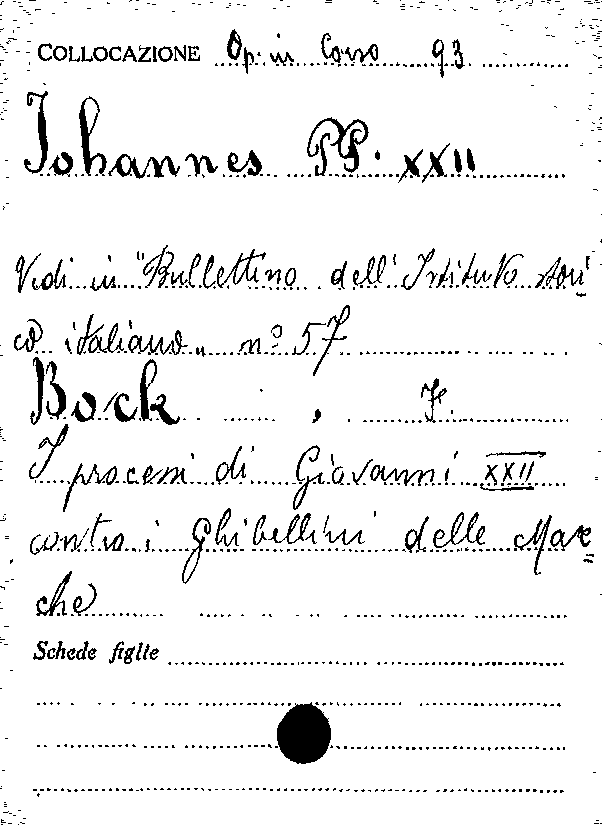 COLLOCAZIONE Op. in Corso 93
Johannes PP. XXII
Vedi in "Bullettino dell'Istituto stori
co italiano" nº 57
Bock, F.
I processi di Giovanni XXII
contro i Ghibellini delle Mar=
che
Schede figlie